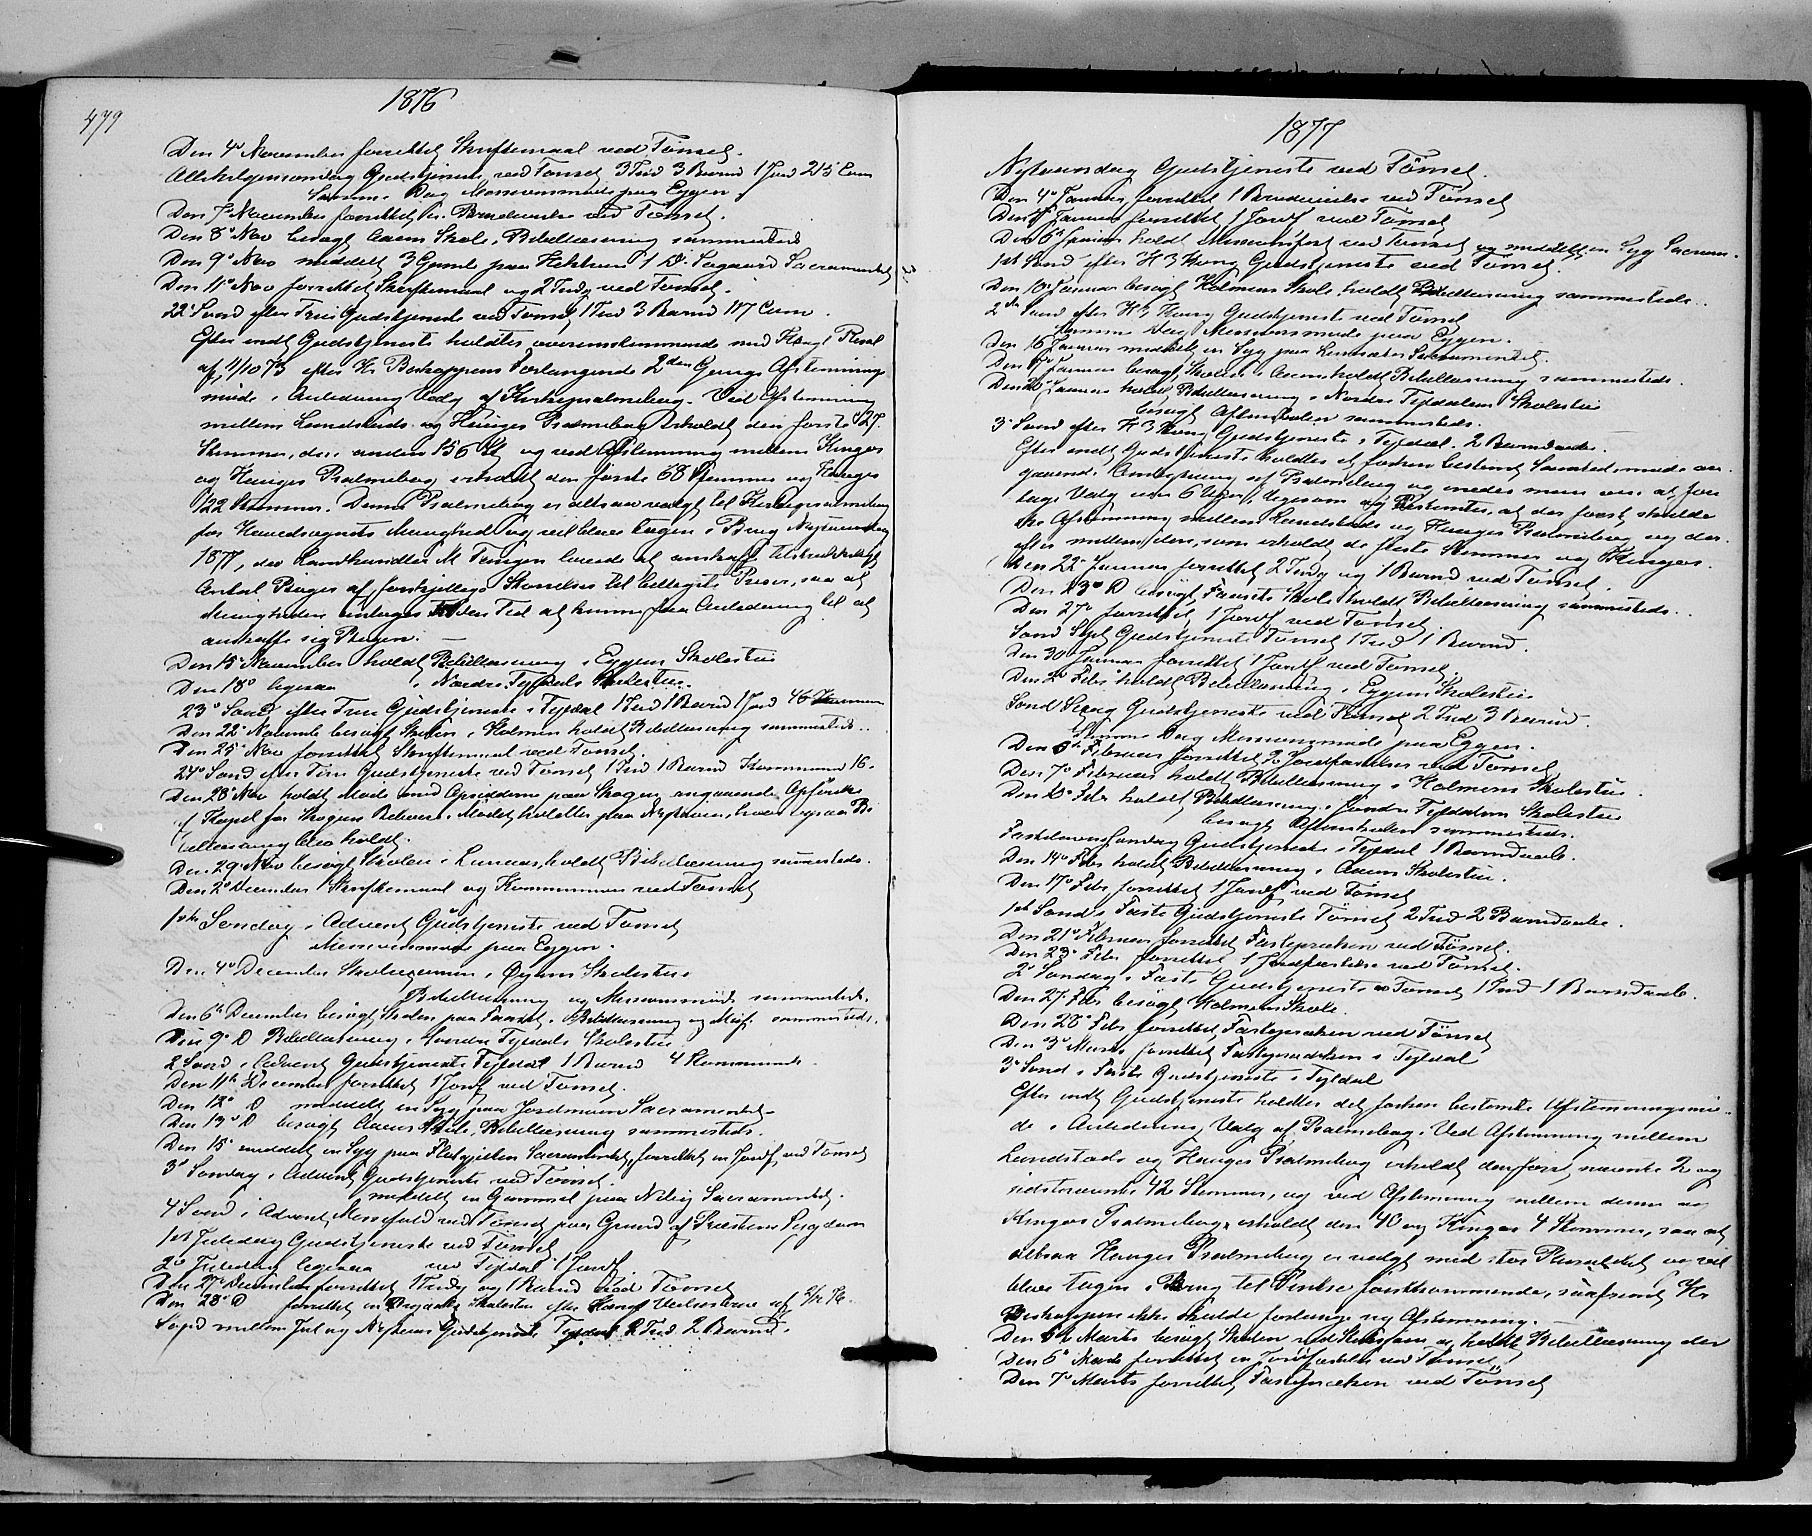 479
1876
Den 4de November forrettet Skriftemaal ved Tønset.
Allehelgensøndag Gudstjeneste ved Tønset 3 Trd 3 Barnd 1 Jord 215 Com
Samme Dag Missionsmøde paa Eggen.
Den 7de November forrettet en Brudevielse ved Tønset.
Den 8de Nov besøgt Aaens Skole, Bibellæsning sammesteds
Den 9de Nov meddelt 3 Gamle paa Sacramentet
Den 11te Nov forrettet Skriftemaal og 2 Trdg ved Tønset.
22de Sønd efter Trin Gudstjeneste ved Tønset 1 Trd 3 Barnd 117 Com.
Efter endt Gudstjeneste holdtes overensstemmende med Kongl Resol
af 11/10 73 efter Hr Biskoppens Forlangende 2den Gangs Afstemnings
møde i Anledning Valg af Kirkepsalmebog. Ved Afstemning
mellem Landstads og Hauges Psalmebog erholdt den første 27
Stemmer, den anden 156 St og ved Afstemning mellem Kingos
og Hauges Psalmebog erholdt den første 68 Stemmer og Hauges
122 Stemmer. Denne Psalmebog er altsaa valgt til Kirkepsalmebog
for Hovedsognets Menighed og vil blive tagen i Brug Nytaarsdag
1877, da Landhandler M Tengen lovede at anskaffe tilstrækkeligt
Antal Bøger af forskjellige Størrelser til billigste Priser, saa at
Menigheden inden den Tid at kunne faa Anledning til at
anskaffe sig Bogen.
Den 15de November holdt Bibellæsning i Eggens Skolestue
Den 18de ligesaa i Nordre Tyldals Skolestue.
23de Sønd efter Trin Gudstjeneste i Tyldal 1 Trd 1 Barnd 1 Jord 46 Kommun
Den 22de Novemb besøgt Skolen i Holmen holdt Bibellæsning sammesteds.
Den 25de Nov forrettet Skriftemaal ved Tønset.
24de Sønd efter Trin Gudstjeneste ved Tønset 1 Trd 1 Barnd Kommun 16.
Den 28de Nov holdt Møde med Opsidderne paa Skogen angaaende Opførelse
af Kapel for Skogens Beboere. Mødet holdtes paa Nytrøen, hvor ogsaa Bi-
bellæsning blev holdt.
Den 29de Nov besøgt Skolen i Lunaas, holdt Bibellæsning sammesteds.
Den 2de December Skriftemaal og Kommunion ved Tønset
1ste Søndag i Advent Gudstjeneste ved Tønset
Missionsmøde paa Eggen.
Den 4de December Skoleexamen i Øiens Skolestue
Bibellæsning og Missionsmøde sammesteds.
Den 6te December besøgt Skolen paa Faaset. Bibellæsning og Misf. sammesteds.
Den 9de D Bibellæsning i Søndre Tyldals Skolestue
2 Sønd i Advent Gudstjeneste Tyldal 1 Barnd 4 Kommunik
Den 11te December forrettet 1 Jordf ved Tønset.
Den 12te D meddelt en Syg paa Jordmoen Sacramentet.
Den 13de D besøgt Aaens Skole, Bibellæsning sammesteds.
Den 15de meddelt en Syg paa Sacramentet, forrettet en Jordf ved Tønset
3de Søndag i Advent Gudstjeneste ved Tønset.
meddelt en Gammel paa Sacramentet.
4 Sønd i Advent Messefald ved Tønset paa Grund af Præstens Sygdom
1ste Juledag Gudstjeneste ved Tønset
2de Juledag ligesaa ved Tyldal 1 Jordf
Den 27de December forrettet 1 Trdg og 1 Barnd ved Tønset
Den 28de D forrettet en Skolestue efter Kongl
Søgd mellem Jul og Nytaar Gudstjeneste Tyldal 2 Trd 2 Barnd.
1877
Nytaarsdag Gudstjeneste ved Tønset.
Den 4de Januar forrettet 1 Brudevielse ved Tønset
Den Januar forrettet 1 Jordf ved Tønset
Den 6te Januar holdt Missionsfest ved Tønset og meddelt en Syg Sacram.
1ste Sønd efter H 3 Kong Gudstjeneste ved Tønset.
Den 10de Januar besøgt Holmens Skole, holdt Bibellæsning sammesteds.
2den Sønd efter H 3 Kong Gudstjeneste ved Tønset
Samme Dag Missionsmøde paa Eggen.
Den 16 Januar meddelt en Syg paa Sacramentet.
Den Januar besøgt Skolen i Aaen holdt Bibellæsning sammesteds.
Den 20 Januar holdt Bibellæsning i Nordre Tyldalens Skolestue
besøgt Aftenskolen sammesteds.
3de Sønd efter H 3 Kong Gudstjeneste i Tyldal. 2 Barndaabe.
Efter endt Gudstjeneste holdtes et forhen bestemt Samtalemøde an-
gaaende Anledning af Psalmebog og enedes man om at fore
tage Valg om 6 Uger, ligesom og bestemtes, at der først skulde
ske Afstemning mellem Landstads og Hauges Psalmebog og der-
efter mellem den, som erholdt de fleste Stemmer og Kingos.
Den 22de Januar forrettet 2 Trdg og 1 Barnd ved Tønset.
Den 23de D besøgt Faasets Skole holdt Bibellæsning sammesteds.
Den 27de forrettet 1 Jordf ved Tønset
Sønd Sept Gudstjeneste Tønset 1 Trd 1 Barnd.
Den 30 Januar forrettet 1 Jordf ved Tønset
Den 2de Febr holdt Bibellæsning i Eggens Skolestue
Sønd Sexag Gudstjeneste ved Tønset 2 Trd 3 Barnd.
Samme Dag Missionsmøde paa Eggen.
Den 6te Februar forrettet 2 Jordfæstelser ved Tønset
Den 7de Februar holdt Bibellæsning i Holmens Skolestue.
Den 10de Febr holdt Bibellæsning i Søndre Tyldalens Skolestue
besøgt Aftenskolen sammesteds.
Fastelavns Søndag Gudstjeneste i Tyldal 1 Barndaab.
Den 14de Febr holdt Bibellæsning i Aaens Skolestue.
Den 17de Febr forrettet 1 Jordf ved Tønset
1ste Sønd i Faste Gudstjeneste Tønset 2 Trd 2 Barndaabe.
Den 21de Februar forrettet Fasteprædken ved Tønset.
Den 23de Febr forrettet 1 Jordfæstelse ved Tønset.
2de Søndag i Faste Gudstjeneste v Tønset 1 Trd 1 Barndaab.
Den 27 Febr besøgt Holmens Skole.
Den 28de Febr forrettet Fasteprædken ved Tønset
Den 3de Marts forrettet Fasteprædken i Tyldal
3de Sønd i Faste Gudstjeneste i Tyldal
Efter endt Gudstjeneste holdtes det forhen bestemte Afstemningsmø-
de i Anledning Valg af Psalmebog. Ved Afstemning mellem
Landstads og Hauges Psalmebog erholdt den først nævnte 2 og
sidstnævnte 42 Stemmer, og ved Afstemning mellem denne og
Kingos Psalmebog erholdt den 40 og Kingos 4 Stemmer, saa at
altsaa Hauges Psalmebog er valgt med stor Pluralitet og vil
blive tagen i Brug til Pintse førstkommende, saafremt Hr
Biskoppen ikke skulde forlange ny Afstemning.
Den 6te Marts besøgt Skolen og holdt Bibellæsning der
Den 6te Marts forrettet en Jordfæstelse ved Tønset
Den 7de Marts forrettet Fasteprædken ved Tønset